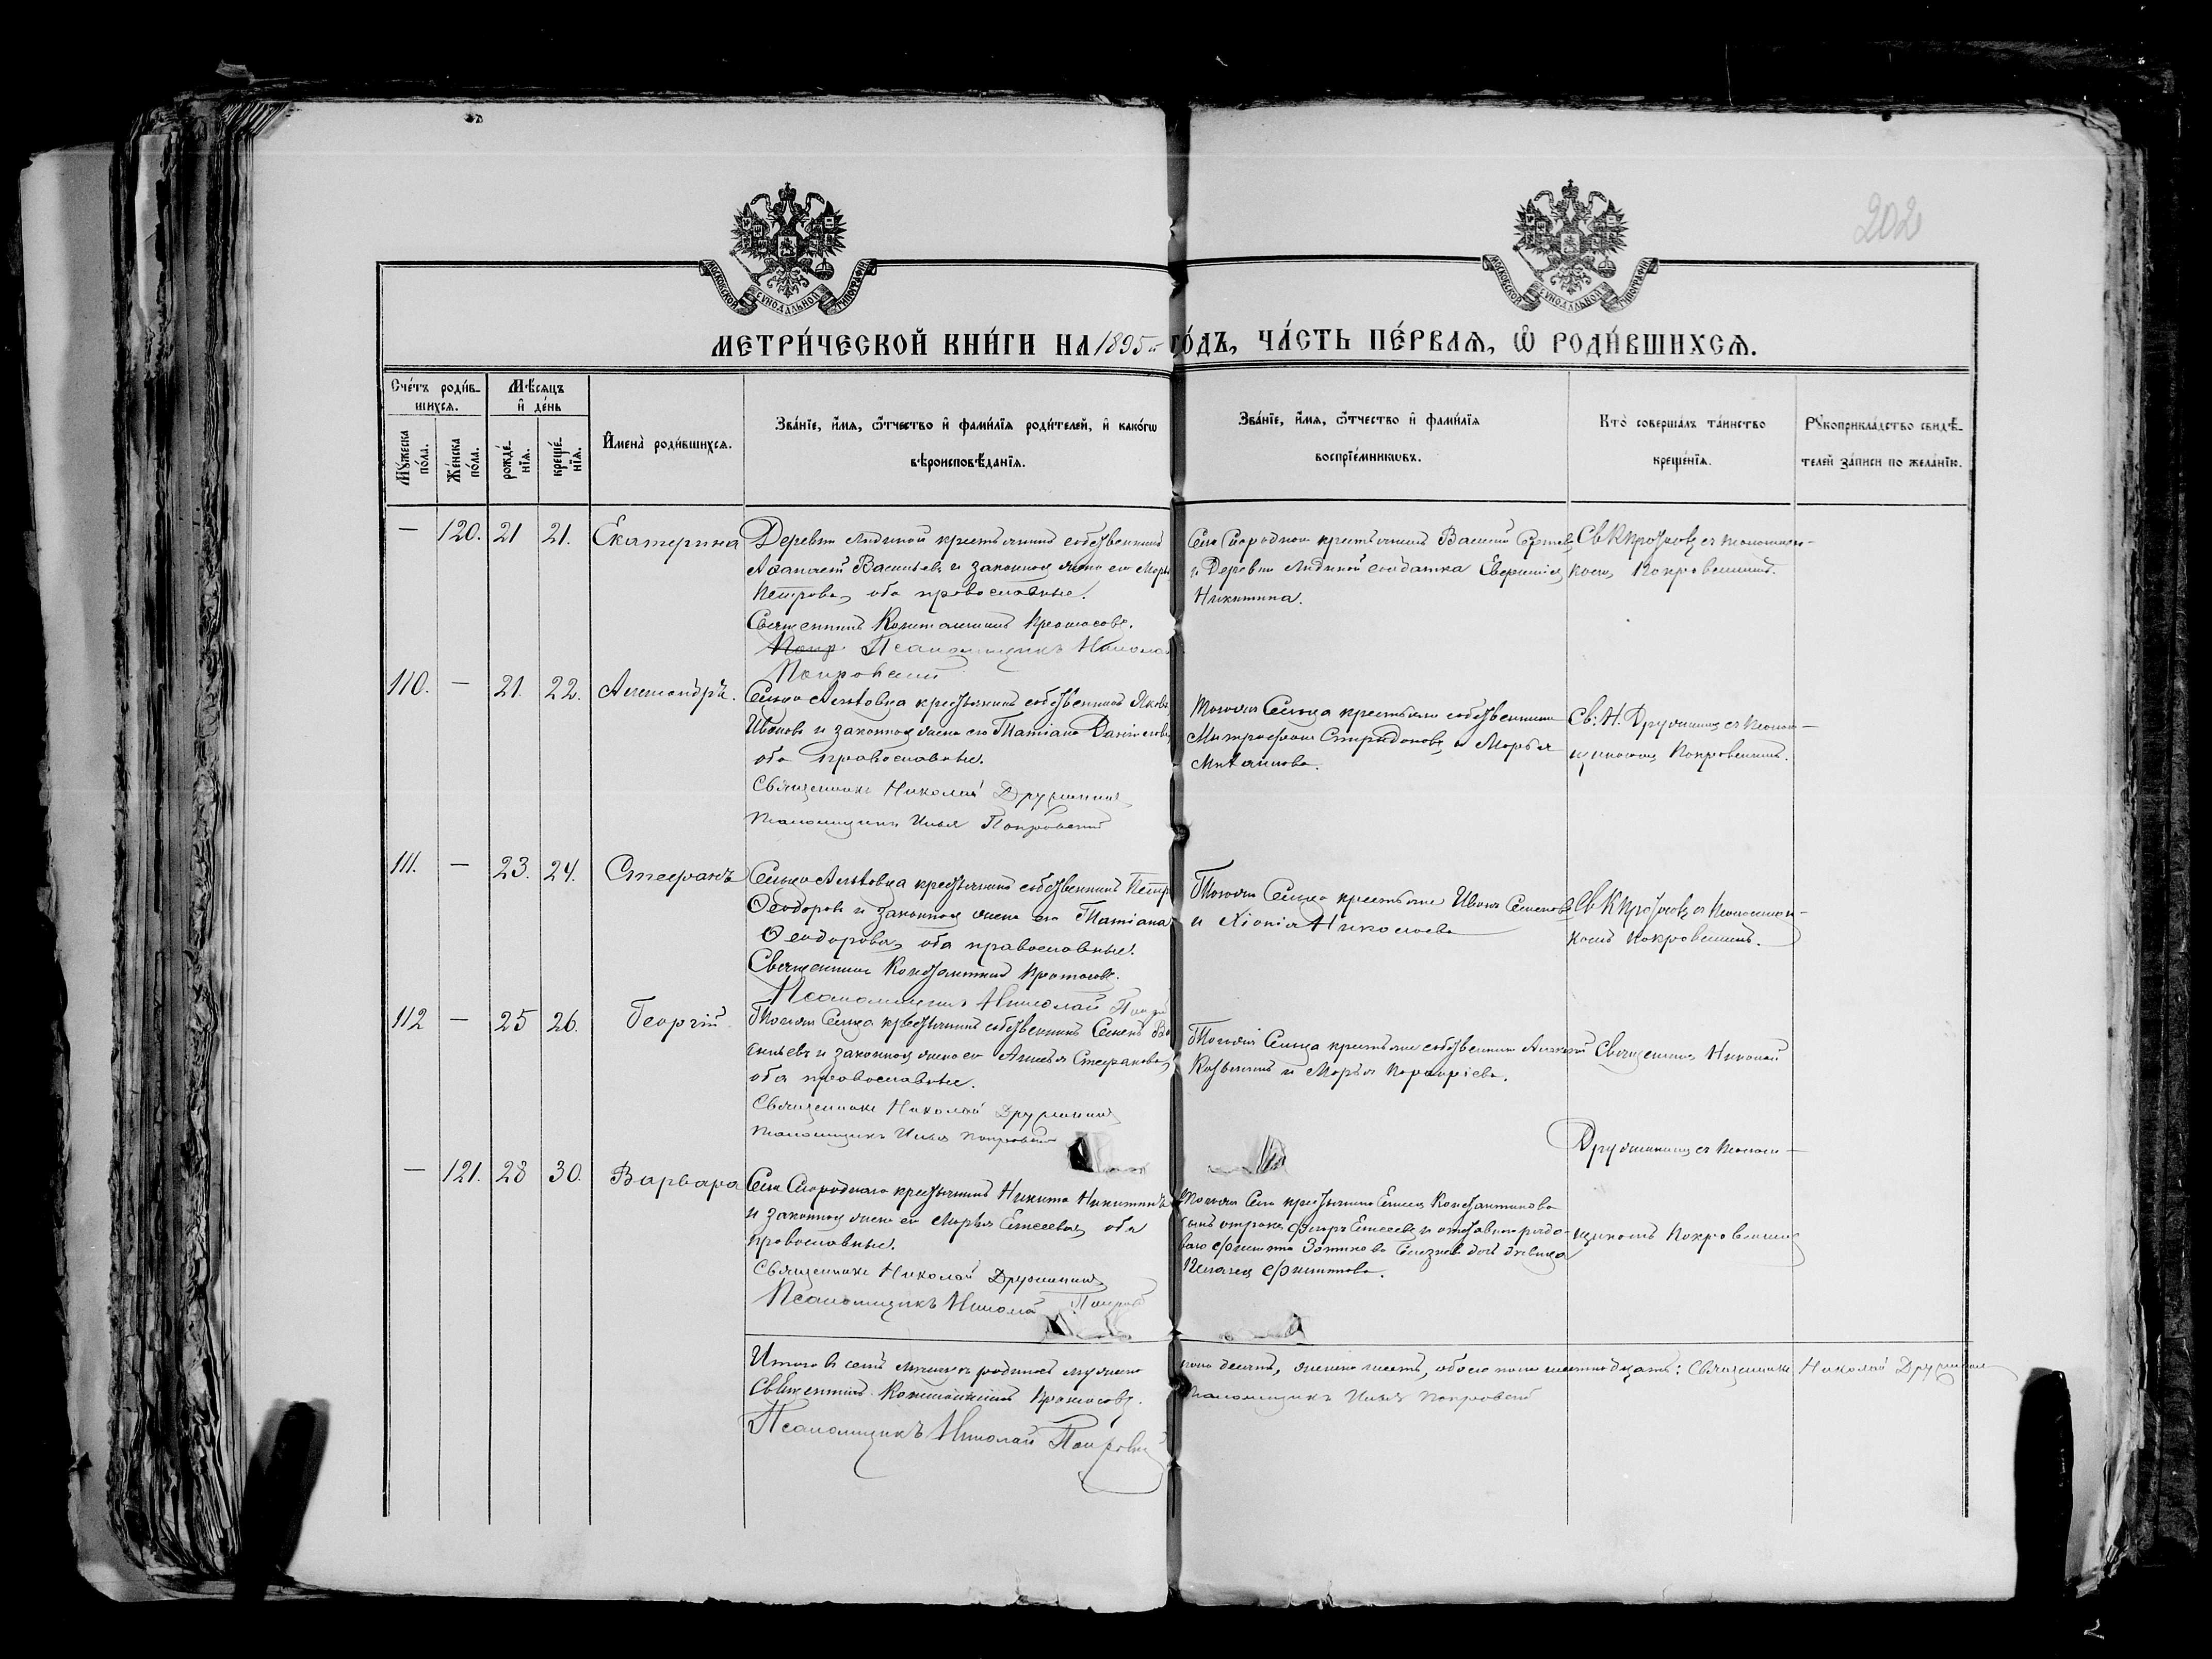 202
МОСКОВСКОЙ СѴНОДАЛЬНОЙ ТИПОГРАФІИ
МОСКОВСКОЙ СѴНОДАЛЬНОЙ ТИПОГРАФІИ
МЕТРИ́ЧЕСКОЙ КНИ́ГИ НА 1895й ГО́ДЪ, ЧА́СТЬ ПЕ́РВАѦ, Ѡ҆ РОДИ́ВШИХСѦ.
Сче́тъ роди́в-
шихсѧ.
Мѣ́сѧцъ
и҆ де́нь
Мꙋ́жеска
по́ла.
Же́нска
по́ла.
рожде́-
нїѧ.
креще́-
нїѧ.
И҆мена̀ роди́вшихсѧ.
Зва́нїе, и҆́мѧ, ѻ҆́тчество и҆ фами́лїѧ роди́телей, и҆ како́гѡ
вѣроисповѣ́данїѧ.
Зва́нїе, и҆́мѧ, ѻ҆́тчество и҆ фами́лїѧ
воспрїе́мникѡвъ.
Кто̀ соверша́лъ та́инство
креще́нїѧ.
Рꙋкоприкла́дство свидѣ́-
телей за́писи по жела́нїю.
— 120. 21 21. Екатерина
Деревни крестьянинъ собственникъ
Аѳанасій Васильевъ и законная жена его Марья
Петрова, оба православные.
Священникъ Константинъ Протасовъ.
Псаломщикъ Николай
Покровскій
Села Скороднаго крестьянинъ Василій
и Деревни солдатка
Никитина.
Св К Протасовъ съ псаломщи-
комъ Покровскимъ.
110. — 21. 22. Александръ.
Сельца крестьянинъ собственникъ Яковъ
Ивановъ и законная жена его Татіана Данилова,
оба православные.
Священникъ Николай Дружининъ
псаломщикъ Илья Покровскій
Тогоже Сельца крестьяне собственники
Митрофанъ Спиридоновъ и Марья
Михайлова.
Св. Н. Дружининъ съ псалом-
щикомъ Покровскимъ.
111. — 23. 24. Стефанъ
Сельца крестьянинъ собственникъ Петръ
Ѳеодоровъ и законная жена его Татіана
Ѳеодорова, оба православные.
Священникъ Константинъ Протасовъ.
Псаломщикъ Николай
Тогоже Сельца крестьяне Иванъ Семеновъ
и Хіонія Николаева
Св К Протасовъ съ Псаломщи-
комъ Покровскимъ.
112 — 25 26. Георгій
Тогоже Сельца крестьянинъ собственникъ Семенъ Ва-
сильевъ и законная жена его Анисья Стефанова,
оба православные.
Священникъ Николай Дружининъ
псаломщикъ Илья Покровскій
Тогоже Сельца крестьяне собственники Алексѣй
Козьминъ и Марья Порфиріева.
Священникъ Николай
Дружининъ съ псалом-
щикомъ Покровскимъ
— 121. 28 30. Варвара
Села Скороднаго крестьянинъ Никита Никитинъ
и законная жена его Марья Елисеева, оба
православные.
Священникъ Николай Дружининъ
Псаломщикъ Николай
Тогоже Села крестьянина Елисея Константинова
сынъ отрокъ Елисеевъ и отставнаго рядо-
ваго Филиппа дѣвица
Пелагея Филиппова.
Итого въ семъ мѣсяцѣ родилось мужеска
пола десять, женска шесть, обоего пола шестнадцать: Священникъ Николай Дружининъ
Священникъ Константинъ Протасовъ.
псаломщикъ Илья Покровскій
Псаломщикъ Николай Покровскій